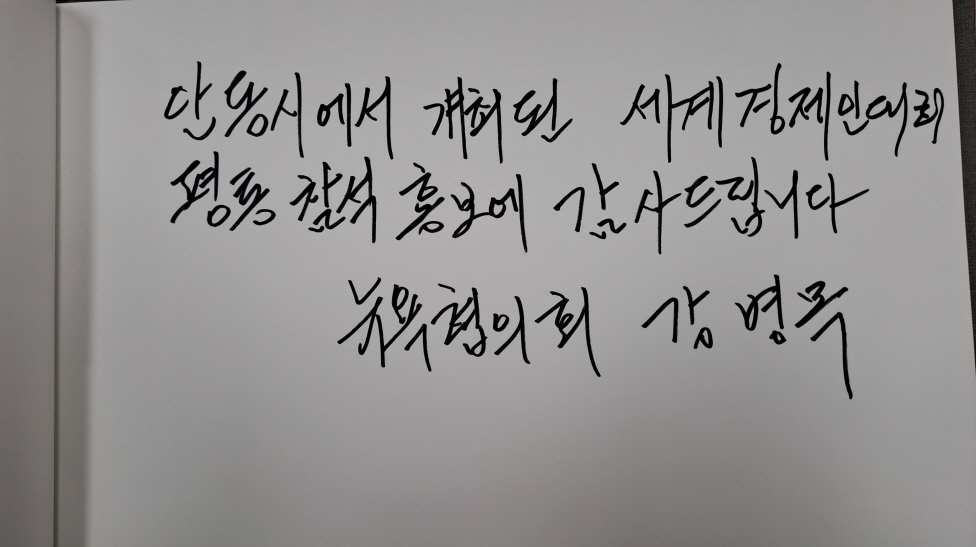 단동시에서 개최된 세계경제인대회
평통 참석 홍보에 감사드립니다
뉴욕협의회 강병목